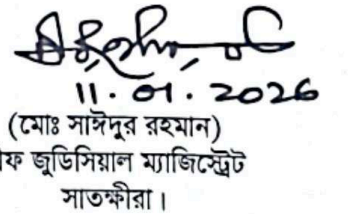 11.01.2026
(মোঃ সাঈদুর রহমান)
ফ জুডিসিয়াল ম্যাজিস্ট্রেট
সাতক্ষীরা।